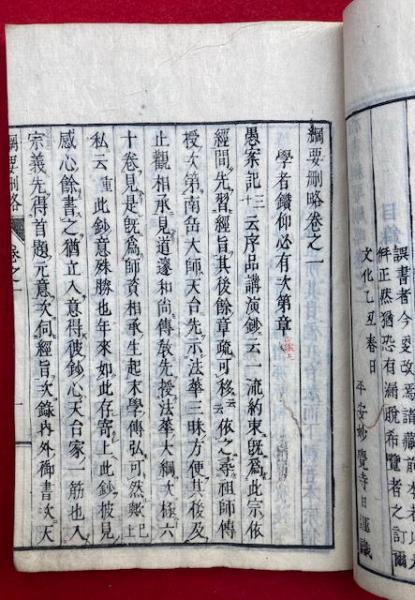 誤書者今更改寫請藏
舛正然猶恐有漏脫希覽者之訂爾
文化乙丑春日
平安妙覺寺日
綱要刪略卷之一
學者鑽仰必有次第章
愚案記三十云序品講演鈔云一流約束既爲此宗依
經間先習經旨其後餘章疏可移云云依之尋祖師傳
授次第南岳大師天台先示法華三昧方便其後及
止觀相承見道邃和尚傳敎先授法華大綱次極六
十卷見是既爲師資相承生起末學傳弘可然歟已上
私云重此鈔意殊勝也年來如此存寄上此鈔彼見
感心餘書之猶立入意得彼鈔心天台家一筋也入
宗義先得首題元意次伺經旨次錄內外御書次天
綱要刪略 卷之一 一